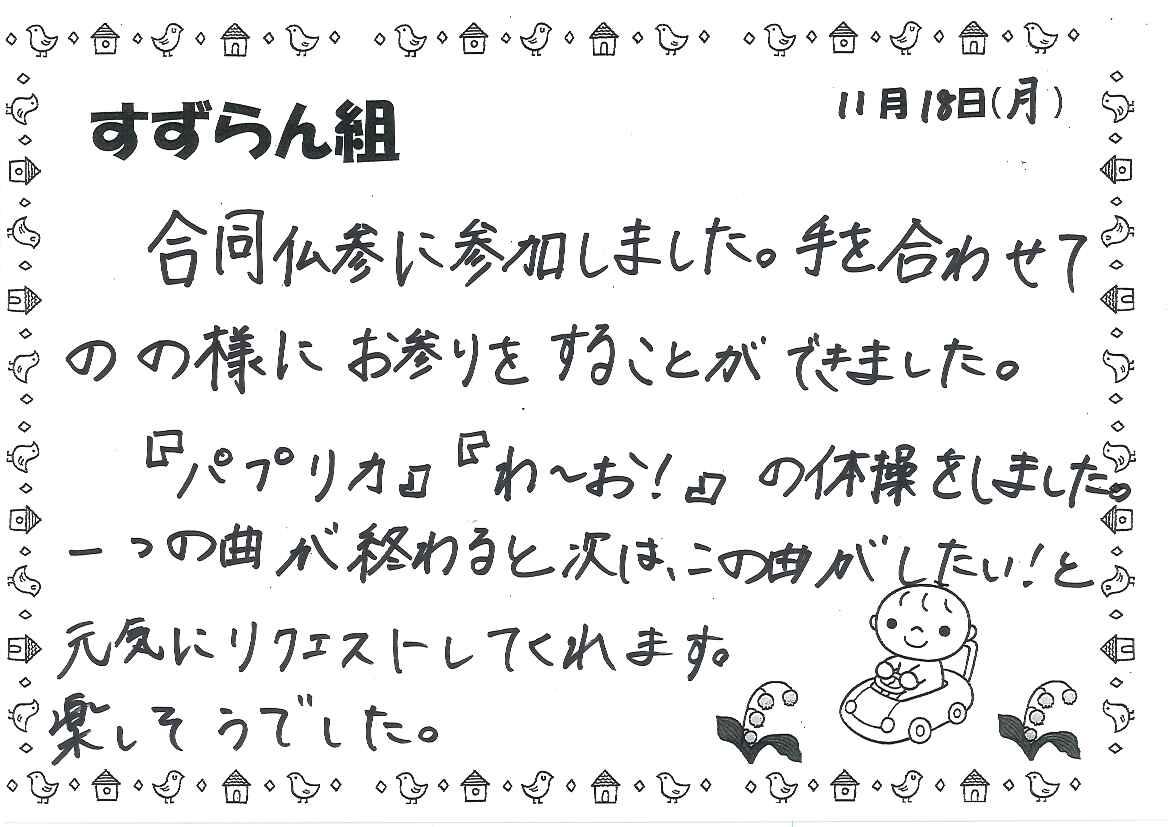 すずらん組
11月18日(月)
合同仏参に参加しました。手を合わせて
のの様にお参りをすることができました。
『パプリカ』『わ～お！』の体操をしました。
一つの曲が終わると次は、この曲がしたい！と
元気にリクエストしてくれます。
楽しそうでした。